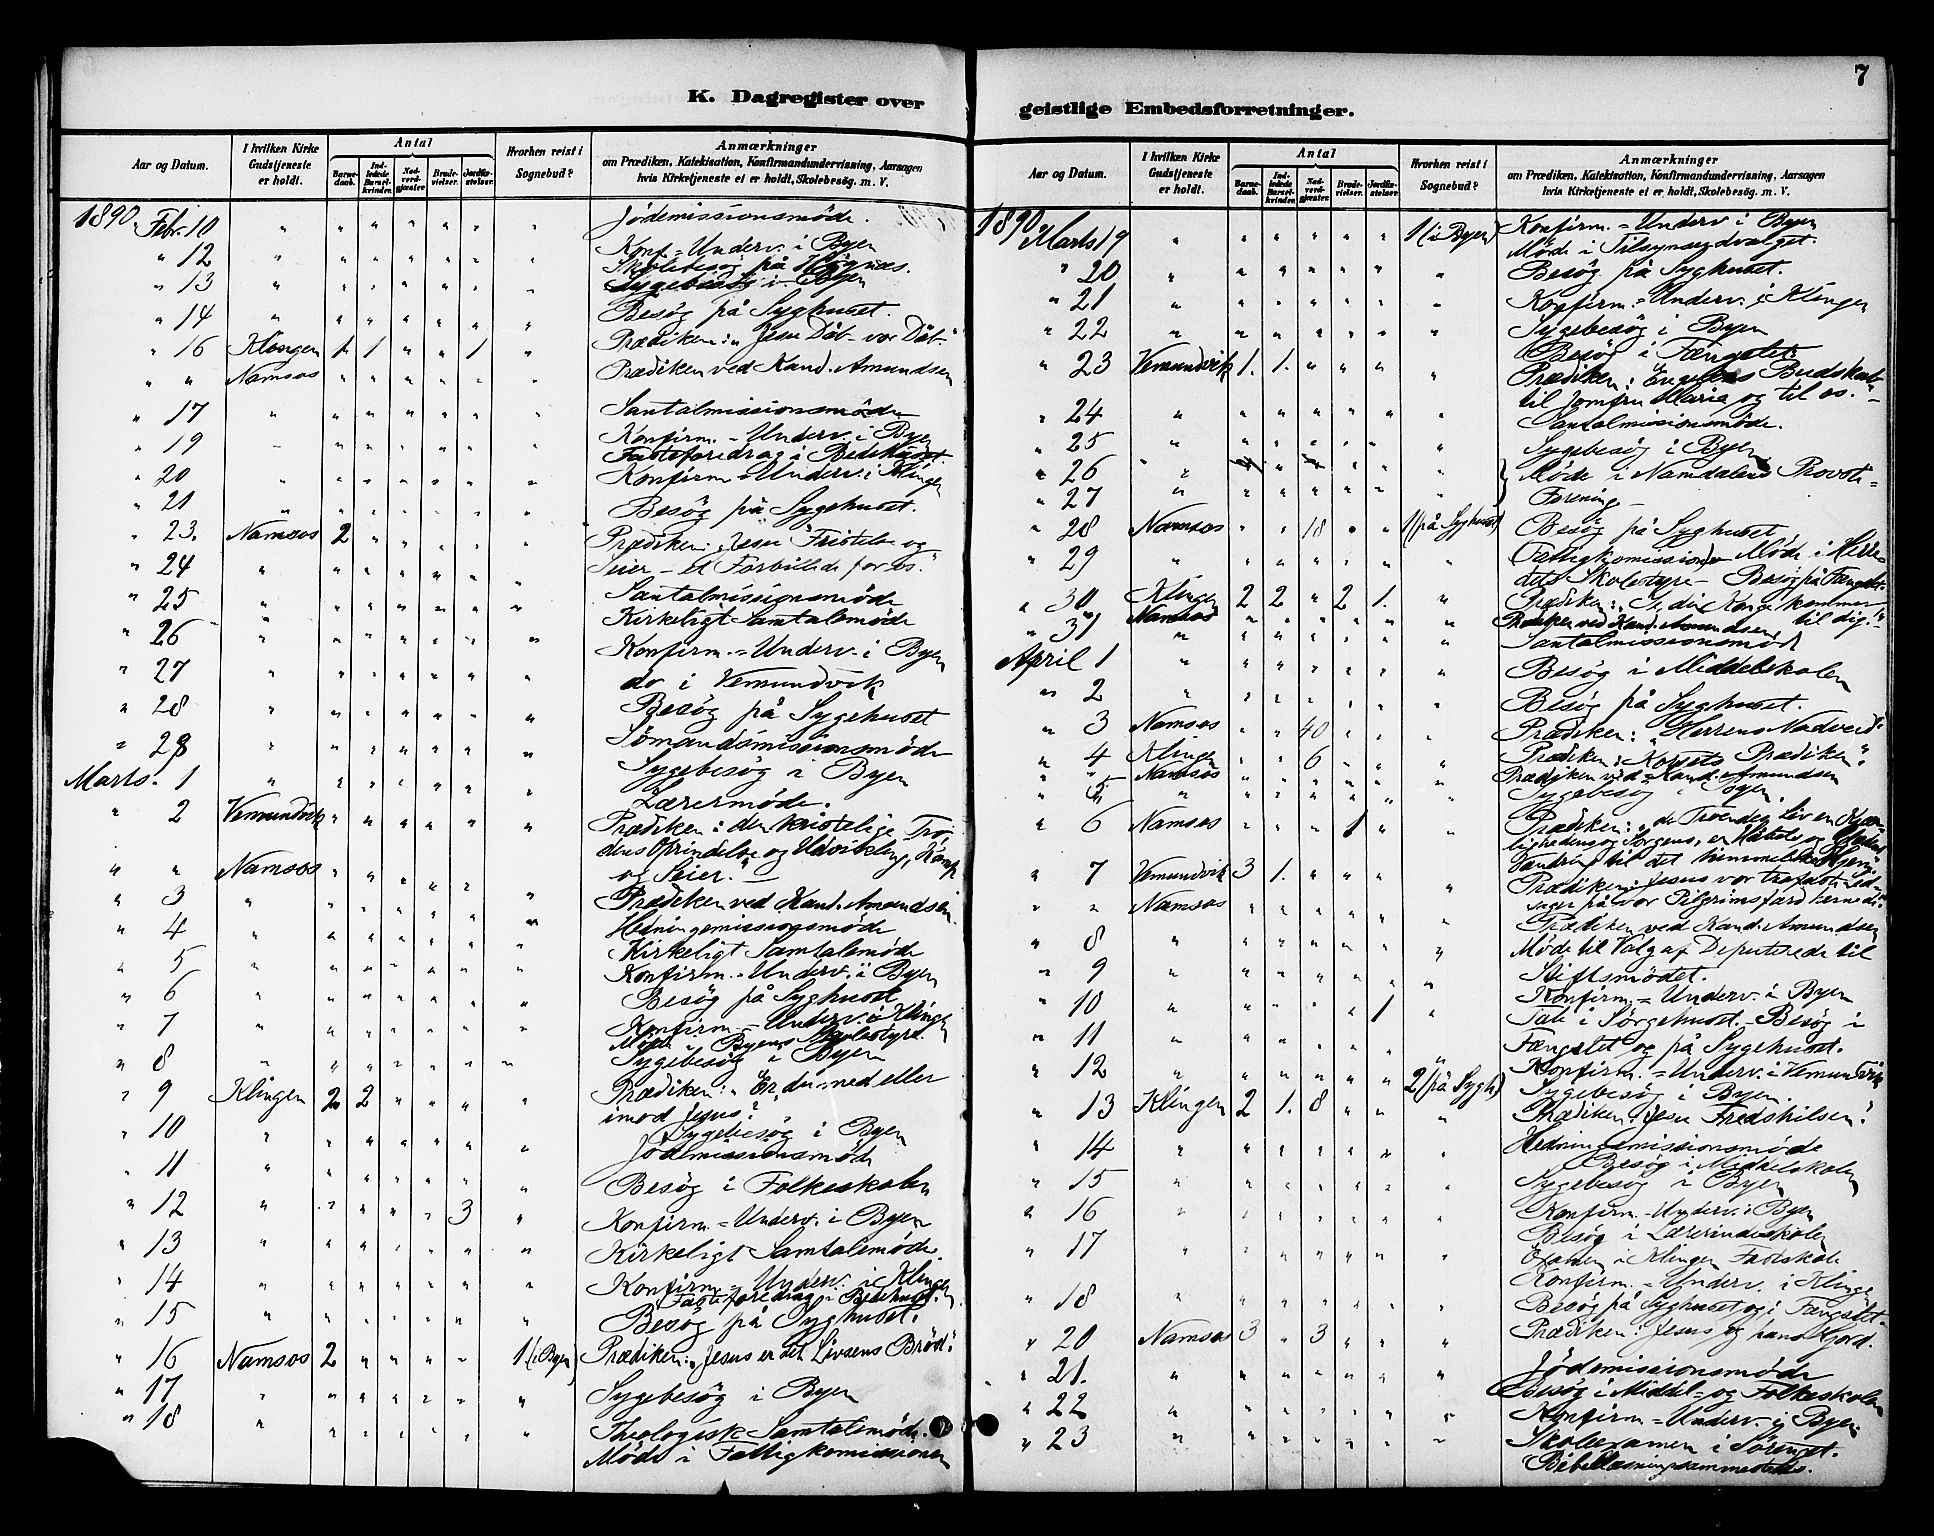 7
K. Dagregister over
Aar og Datum.
I hvilken Kirke Gudstjeneste er holdt.
Antal
Barnedaab.
Indledede Barselkvinder.
Nadverdgjæster.
Brudevielser.
Jordfæstelser.
Hvorhen reist i Sognebud?
Anmærkninger
om Prædiken, Katekisation, Konfirmandundervisning, Aarsagen
hvis Kirketjeneste ei er holdt, Skolebesøg. m. V.
1890. Febr. 10 " " " " " " " Jödemissionsmöde.
" 12 " Konf.=Underv. i Byen
Skolebesög på Högnæs.
" 13 " Sygebesög i Byen
" 14 " Besög på Syghuset.
" 16 Klingen 1 1 " " 1 " Prædiken: "Jesu Dåb – vor Dåb"
" " Namsos Prædiken ved Kand. Amundsen
" 17 " Santalmissionsmöde
" 19 – Konfirm.=Underv. i Byen
Fasteforedrag i Bedehuset.
" 20 " Konfirm=Underv. i Klingen
" 21 " Besög på Sygehuset.
" 23. Namsos 2 Prædiken: "Jesu Fristelse og
" 24 " Seier – et Forbillede for os."
" 25 " Santalmissionsmöde
Kirkeligt Samtalemöde
" 26 " Konfirm.=Underv. i Byen
" 27 " do i Vemundvik
" 28 " Besög på Sygehuset
" 29 " Sömandsmissionsmöde
Sygebesög i Byen
Marts. 1 " Lærermöde.
" 2 Vemundvik Prædiken: den kristelige Tro,
dens Oprindelse og Udvikling, Kamp
" " Namsos og Seier." –
" 3 " Prædiken ved Kand. Amundsen
" 4 " Hedningemissionsmöde
Kirkeligt Samtalemöde
" 5 " Konfirm.=Underv. i Byen
" 6 " Besög på Syghuset
" 7 " Konfirm.=Underv. i Klingen
Möde i Byens Skolestyre.
" 8 " Sygebesög i Byen
" 9 Klingen 2 2 " " " " Prædiken: "Er du med eller
imod Jesus?"
" 10 " Sygebesög i Byen
Jödemissionsmöde
" 11 " Besög i Folkeskolen
" 12 " " " " " 3 " Konfirm.=Underv. i Byen
" 13 " Kirkeligt Samtalemöde.
" 14 " Konfirm.=Underv. i Klingen
Fasteforedrag i Bedehuset.
" 15 " Besög på Syghuset.
" 16 Namsos 2 " " " " 1 (i Byen) Prædiken: "Jesus er det Livsens Bröd."
" 17 " Sygebesög i Byen
" 18 " Theologisk Samtalemöde.
Möde i Fattigkomissionen
geistlige Embedsforretninger.
Aar og Datum.
I hvilken Kirke Gudstjeneste er holdt.
Antal
Barnedaab.
Indledede Barselkvinder.
Nadverdgjæster.
Brudevielser.
Jordfæstelser.
Hvorhen reist i Sognebud?
Anmærkninger
om Prædiken, Katekisation, Konfirmandundervisning, Aarsagen
hvis Kirketjeneste ei er holdt, Skolebesøg. m. V.
1890. Marts 19 " " " " " " 1 (i Byen) Konfirm.=Underv. i Byen
Möde i Tilsynsudvalget.
" 20 " Besög på Syghuset.
" 21 " Konfirm.=Underv. i Klingen
" 22 " Sygebesög i Byen
Besög i Fængslet.
" 23 Vemundvik 1. 1. " " " " Prædiken: Engelens Budskab
til Jomfru Maria og til os."
" 24 " Santalmissionsmöde.
" 25 " Sygebesög i Byen
" 26 " Möde i Namdalens Provsti=
" 27 " Forening –
" 28 Namsos " " 18 " " 1 (på Syghuset) Besög på Syghuset
" 29 " Fattigkomission. Möde i Herre=
dets Skolestyre – Besög på Fængslet.
" 30 Klingen 2 2 " 2 1. " Prædiken: "Se, din Konge kommer
til dig!"
" " Namsos Prædiken ved Kand. Amundsen
" 31 " Santalmissionsmöd
April 1 " Besög i Middelskolen
" 2 " Besög på Syghuset.
" 3 Namsos " " 40 " " " Prædiken: "Herrens Nadverd."
" 4 Klingen " " 6 " " " Prædiken: "Korsets Prædiken".
" " Namsos Prædiken ved Kand. Amundsen
" 5 " Sygebesög i Byen.
" 6 Namsos " " " 1 " " Prædiken: "de Troendes Liv en Kjær=
lighedens og Sorgens, er Håbets og Glædens
Vandring til det himmelske Hjem."
" 7 Vemundvik 3 1. " " " " Prædiken: Jesus vor trofaste Led=
sager på vor Pilgrimsfærd hernede."
" " Namsos Prædiken ved Kand. Amundsen
" 8 " Möde til Valg af Deputerede til
" 9 " Stiftsmödet.
Konfirm.=Underv. i Byen
" 10 " " " " " 1 " Tale i Sörgehuset. Besög i
" 11 " Fængslet og på Sygehuset.
" 12 " Konfirm.=Underv. i Vemundvik
2 (på Sygh.) Sygebesög i Byen.
" 13 Klingen 2 1. 8 " " " Prædiken: "Jesu Fredshilsen".
" 14 " Hedningemissionsmöde
Besög i Middelskolen
" 15 " Sygebesög i Byen
" 16 " Konfirm.=Underv. i Byen
Besög i Lærerindeskolen
" 17 " Examen i Klingen Fastskole
Konfirm.=Underv. i Klingen
" 18 " Besög på Syghuset og i Fængslet.
" 20 Namsos 3 " 3 " " " Prædiken: "Jesus og hans Hjord.
" 21. " Jödemissionsmöde
Besög i Middel= og Folkeskolen
" 22 " Konfirm.=Underv. i Byen
" 23 " Skoleexamen i Sörenget.
Bibellæsning sammesteds.